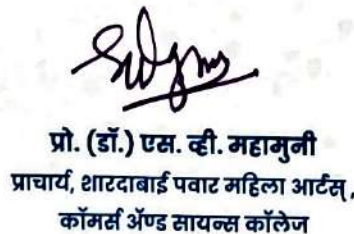 प्रो. (डॉ.) एस. व्ही. महामुनी
प्राचार्य, शारदाबाई पवार महिला आर्टस्,
कॉमर्स अ‍ॅण्ड सायन्स कॉलेज